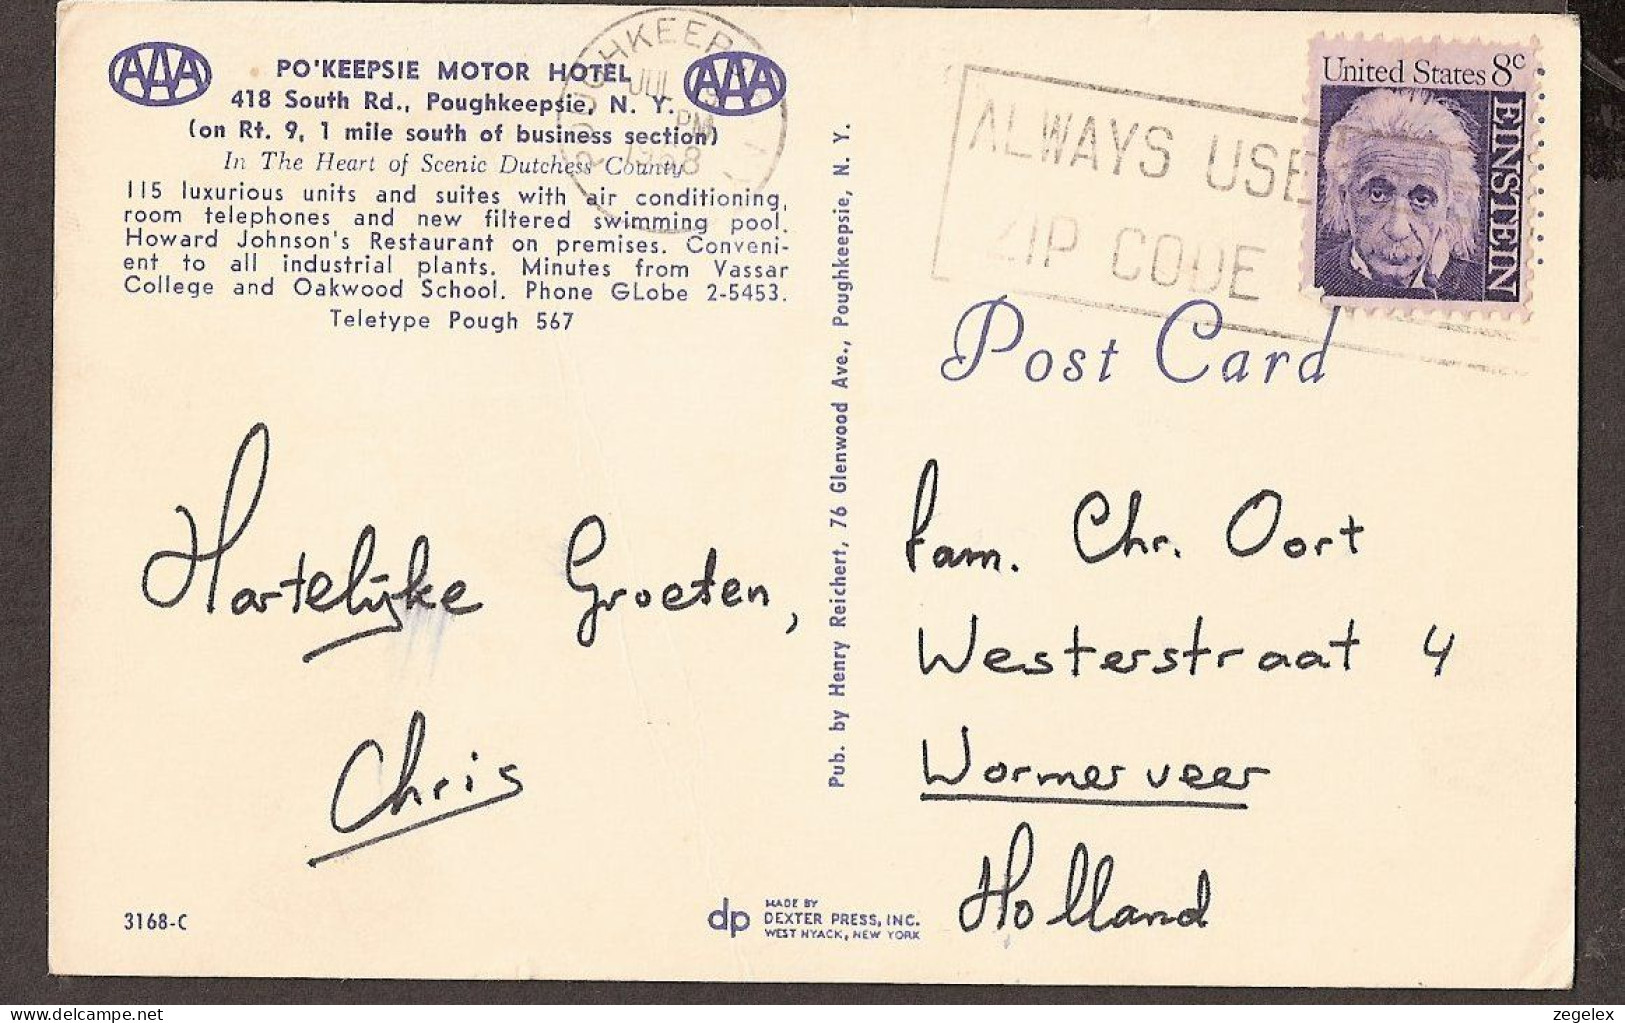 AAA
PO'KEEPSIE MOTOR HOTEL
AAA
418 South Rd., Poughkeepsie, N. Y.
(on Rt. 9, 1 mile south of business section)
In The Heart of Scenic Dutchess County
115 luxurious units and suites with air conditioning,
room telephones and new filtered swimming pool.
Howard Johnson's Restaurant on premises. Conveni-
ent to all industrial plants. Minutes from Vassar
College and Oakwood School. Phone GLobe 2-5453.
Teletype Pough 567
JUL
PM
1968
ALWAYS USE
ZIP CODE
United States 8c
EINSTEIN
Post Card
Hartelijke Groeten,
Chris
Pub. by Henry Reichert, 76 Glenwood Ave., Poughkeepsie, N. Y.
fam. Chr. Oort
Westerstraat 4
Wormerveer
Holland
3168-C
dp
MADE BY
DEXTER PRESS, INC.
WEST NYACK, NEW YORK
delcampe.net
zegelex